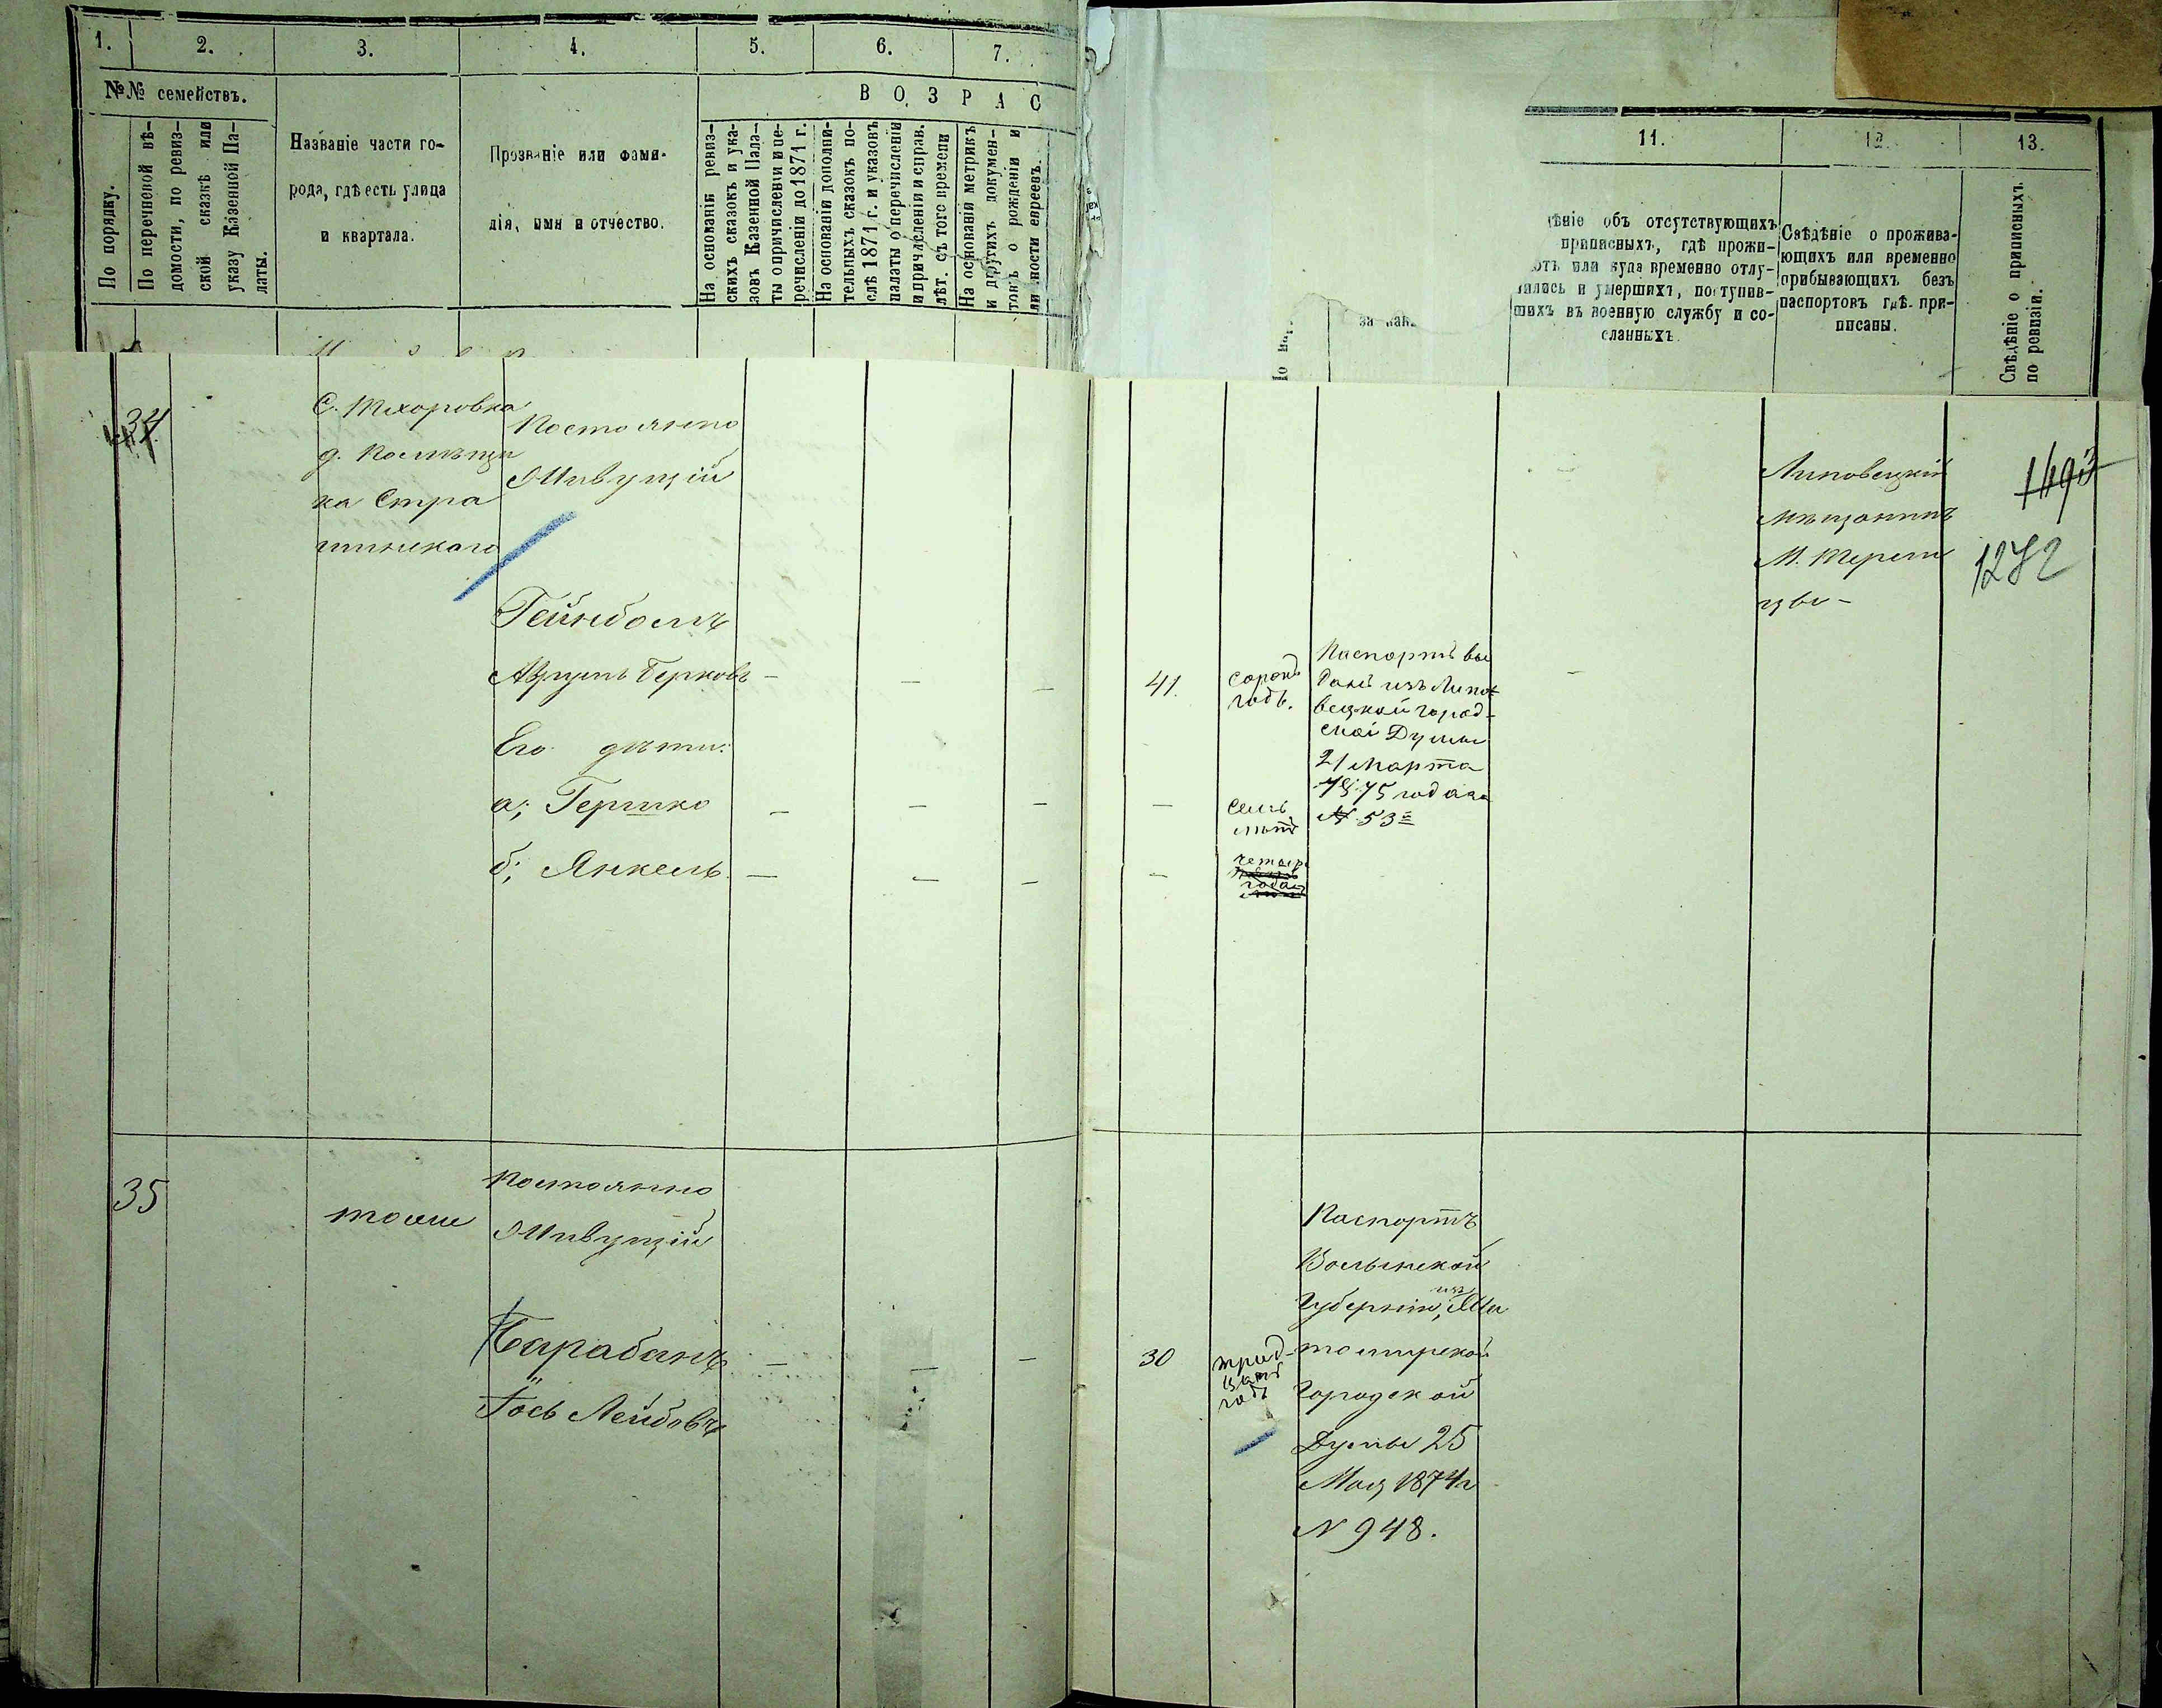 1.
2.
3.
4.
5.
6.
7.
№№ семействъ.
По порядку.
По перечневой вѣ-
домости, по ревиз-
ской сказкѣ или
указу Казенной Па-
латы.
Названіе части го-
рода, гдѣ есть улица
и квартала.
Прозваніе или фами-
лія, имя и отчество.
ВОЗРАС
На основаніи ревиз-
скихъ сказокъ и ука-
зовъ Казенной Пала-
ты о причисленіи и пе-
речисленіи до 1871 г.
На основаніи дополни-
тельныхъ сказокъ по-
слѣ 1871 г. и указовъ
палаты о перечисленіи
и причисленіи и справ.
лѣт. съ того времени
На основаніи метрикъ
и другихъ докумен-
товъ о рожденіи и
личности евреевъ.
11.
12.
13.
за как
ѣніе объ отсутствующихъ
приписныхъ, гдѣ прожи-
ютъ или куда временно отлу-
чились и умершихъ, поступив-
шихъ въ военную службу и со-
сланныхъ.
Свѣдѣніе о прожива-
ющихъ или временно
прибывающихъ безъ
паспортовъ гдѣ при-
писаны.
Свѣдѣніе о приписныхъ
по ревизіи.
34
С. Тхоровка
д. Помѣщи
ка Стра
шинскаго
Постоянно
Живущій
Гейнбомъ
Аврумъ Берковъ
Его дѣти:
а; Гершко
б; Янкель
41.
сорокъ
годъ.
семь
лѣтъ
четыре
года
Паспортъ вы
данъ изъ Липо-
вецкой город-
ской Думы
21 Марта
1875 года за
№ 53
Липовецкій
мѣщанинъ
М. Терли
цы -
1493
1272
35
тоже
Постоянно
Живущій
Барабанъ
Гось Лейбовъ
30
трид-
цать
годъ
Паспортъ
Волынской
Губерніи, изъ Жи
томирской
Городской
Думы 25
Мая 1874 г
N 948.